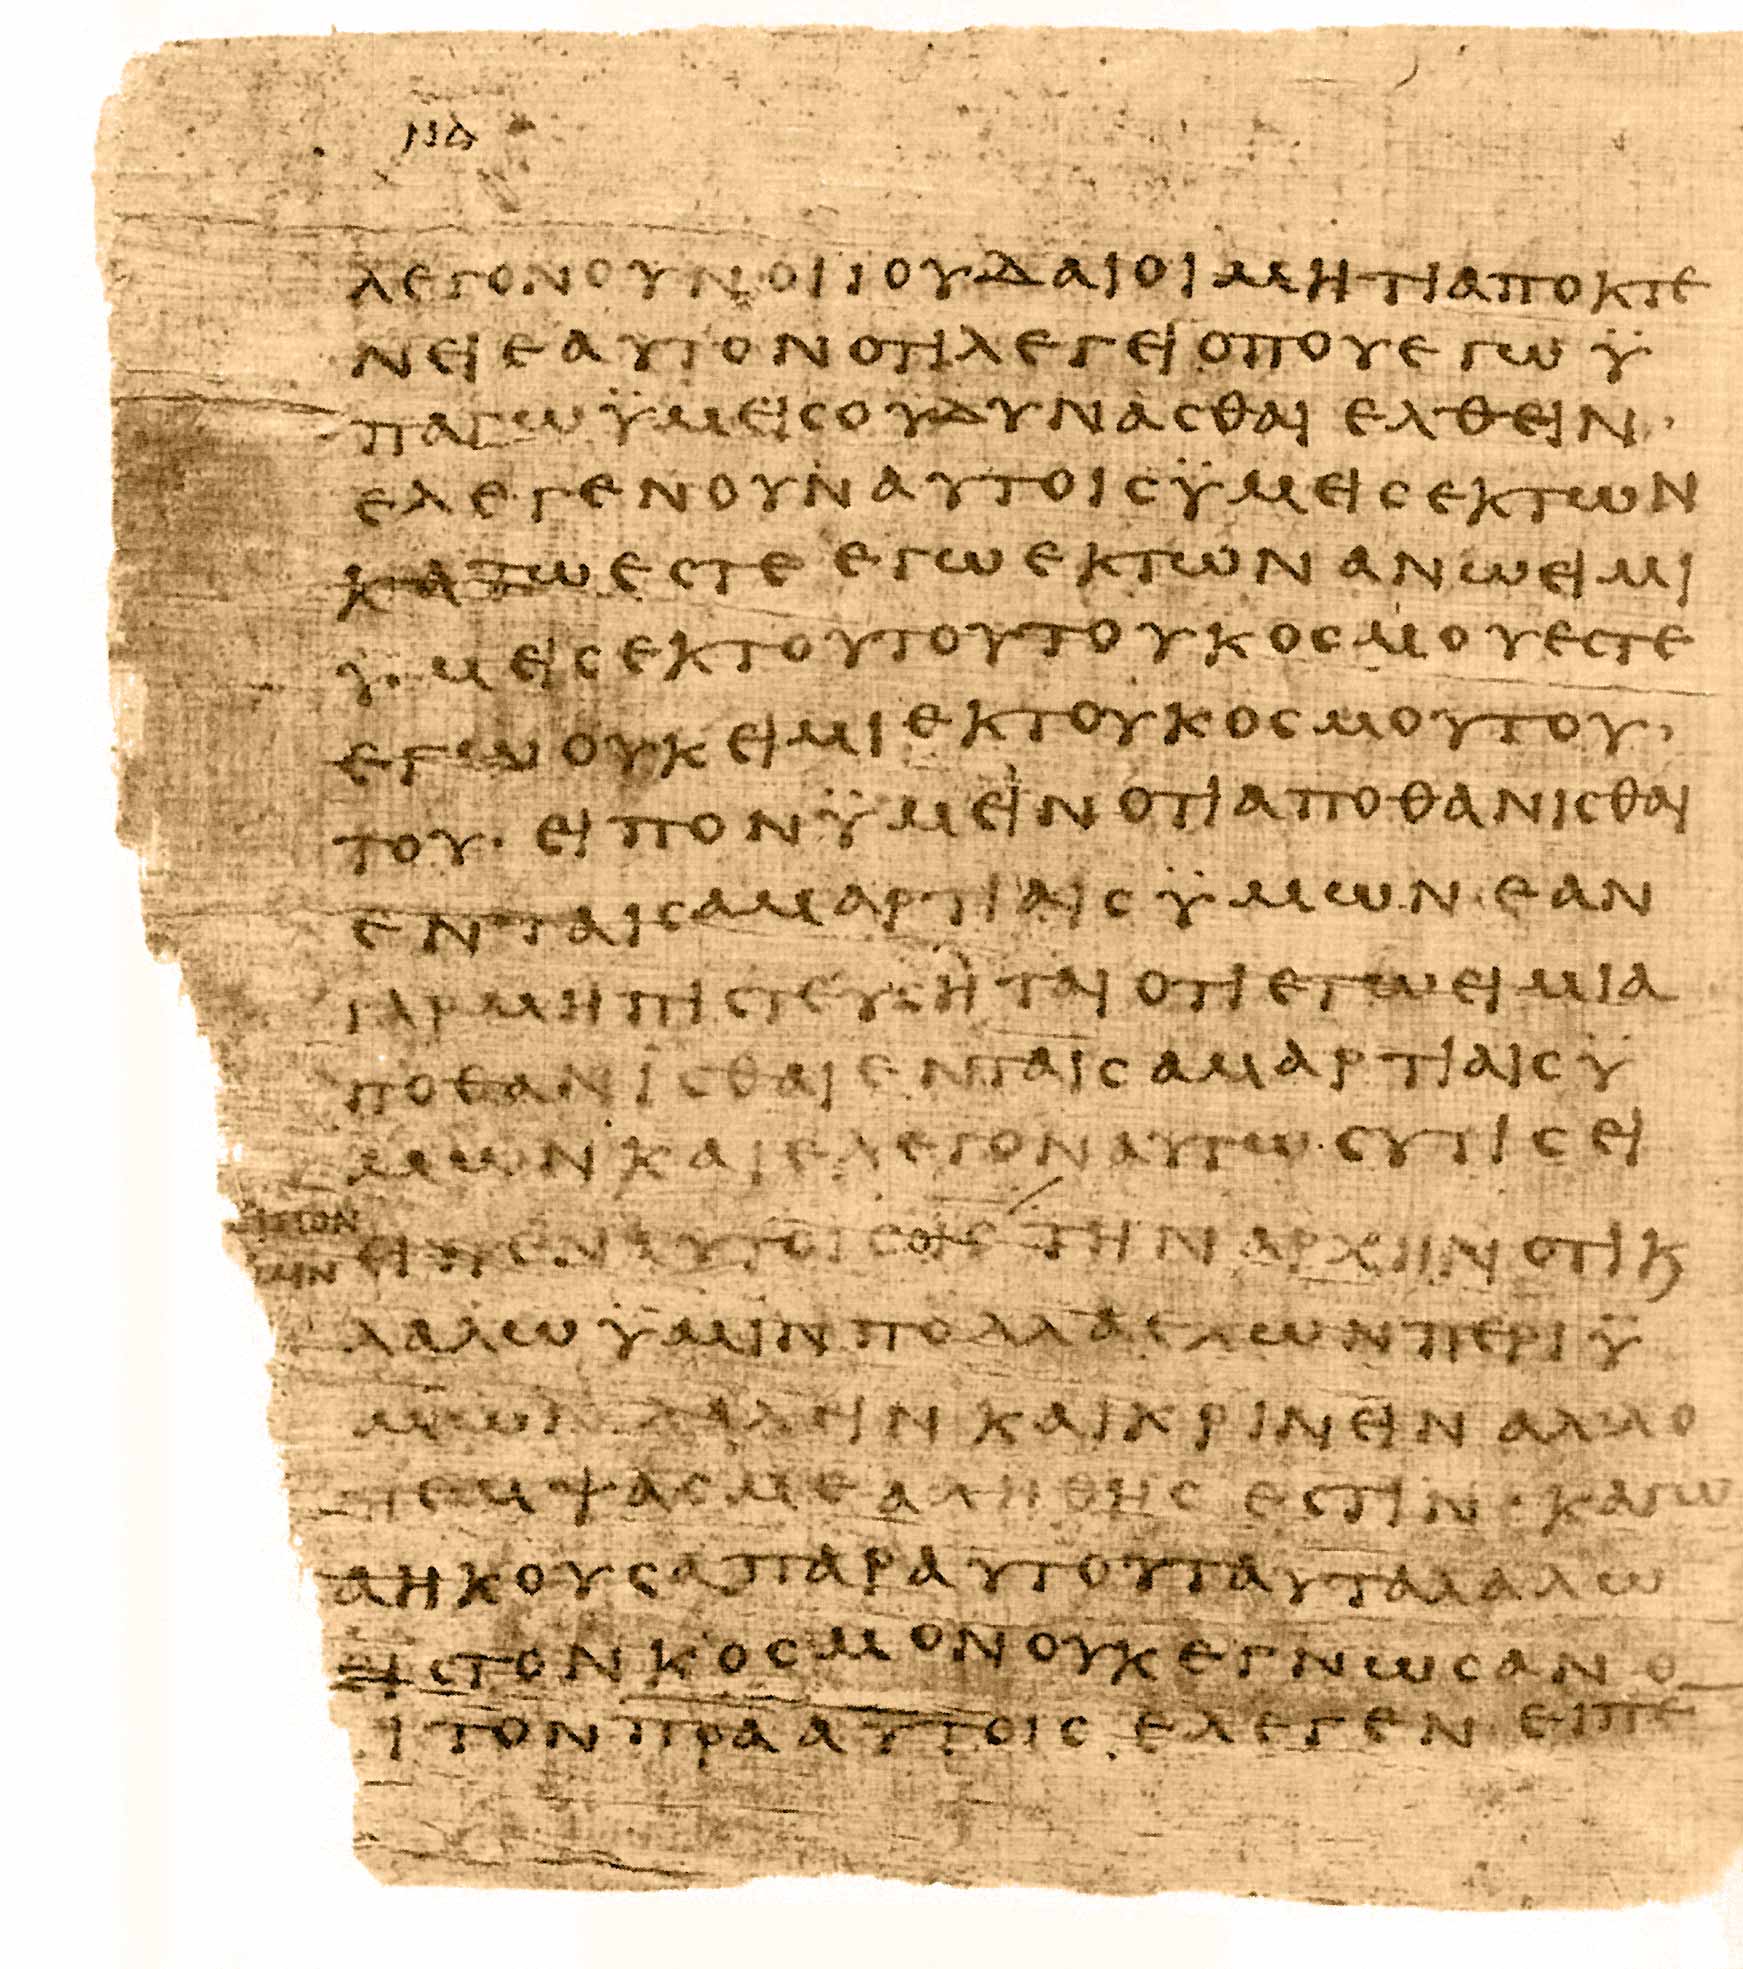 λεγονουνοιιουδαιοιμητιαποκτε
νειεαυτονοτιλεγειοπουεγωϋ
παγωϋμειςουδυναςθαιελθειν·
ελεγενουναυτοιςϋμειςεκτων
κατωεστεεγωεκτωνανωειμι
ϋμειςεκτουτουτουκοςμουεςτε
εγωουκειμιεκτουκοςμουτου·
του·ειπονϋμεινοτιαποθανιςθαι
ενταιςαμαρτιαιςϋμων·εαν
γαρμηπιςτευςηταιοτιεγωειμια
ποθανιςθαιενταιςαμαρτιαιςϋ
μωνκαιελεγοναυτω·ςυτιςει
ειπεναυτοις την αρχηνοτικ
λαλωϋμινπολλαεχωνπεριϋ
μωνλαλεινκαικρινειναλλο
πεμψαςμεαληθηςεςτιν·καγω
αηκουςαπαραυτουταυταλαλω
ειςτονκοςμονουκεγνωςανο
ιτονπρααυτοιςελεγεν·ειπε